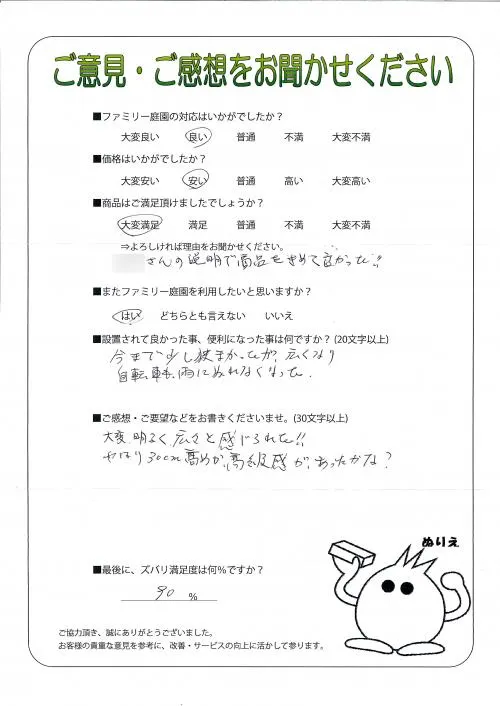 ご意見・ご感想をお聞かせください
■ファミリー庭園の対応はいかがでしたか?
大変良い 良い 普通 不満 大変不満
■価格はいかがでしたか?
大変安い 安い 普通 高い 大変高い
■商品はご満足頂けましたでしょうか?
大変満足 満足 普通 不満 大変不満
⇒よろしければ理由をお聞かせください。
さんの説明で商品をきめて良かった!!
■またファミリー庭園を利用したいと思いますか?
はい どちらとも言えない いいえ
■設置されて良かった事、便利になった事は何ですか? (20文字以上)
今まで少し狭まかったが、広くなり
自転車も雨にぬれなくなった.
■ご感想・ご要望などをお書きくださいませ。(30文字以上)
大変明るく広さと感じられた!!
やはり30cm高めが、高級感があったかな?
ぬりえ
■最後に、ズバリ満足度は何%ですか?
90 %
ご協力頂き、誠にありがとうございました。
お客様の貴重な意見を参考に、改善・サービスの向上に活かして参ります。